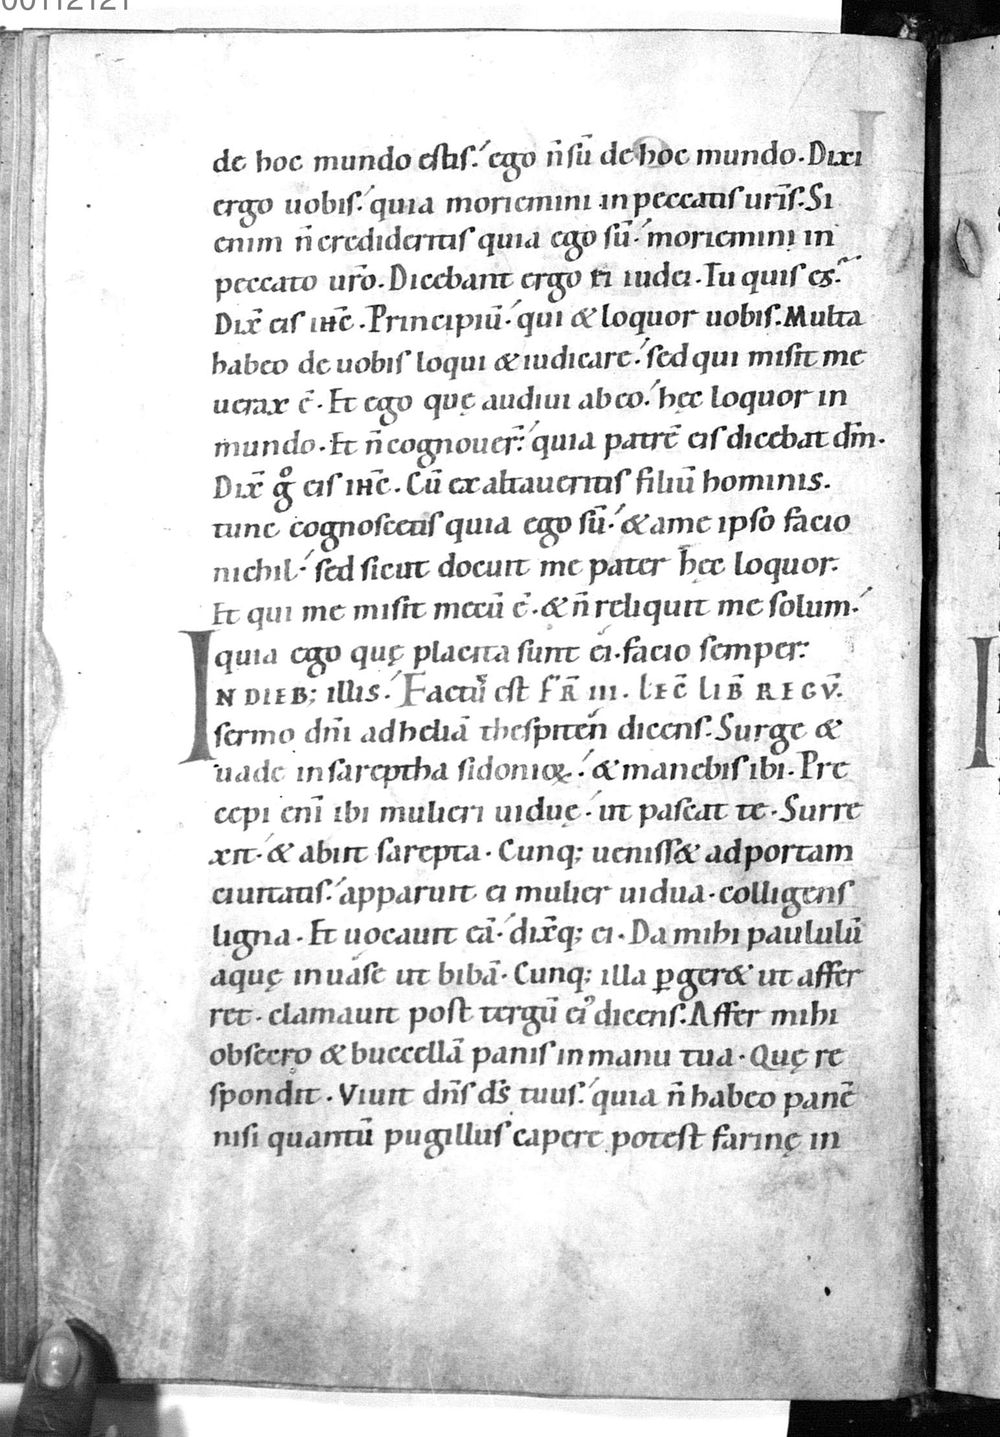 00112121
de hoc mundo estis. ego n̄ sū de hoc mundo. Dixi
ergo uobis. quia moriemini in peccatis ur̄is. Si
enim n̄ credideritis quia ego sū. moriemini in
peccato ur̄o. Dicebant ergo ei iudei. Tu quis es.
Dix̄ eis ih̄c. Principiū. qui & loquor uobis. Multa
habeo de uobis loqui & iudicare. sed qui misit me
uerax ē. Et ego quę audiui ab eo. hęc loquor in
mundo. Et n̄ cognouer̄. quia patrē eis dicebat dm̄.
Dix̄ gͦ eis ih̄c. Cū exaltaueritis filiū hominis.
tunc cognoscetis quia ego sū. & a me ipso facio
nichil. sed sicut docuit me pater hęc loquor.
Et qui me misit mecū ē. & n̄ reliquit me solum.
quia ego quę placita sunt ei. facio semper.
IN DIEB; illis. Factū est FR̄ III. LEC̄ LIB̄ REGV̄.
sermo dn̄i ad heliā thesbiten dicens. Surge &
uade in sareptha sidonioꝝ. & manebis ibi. Pre
cepi eni̅ ibi mulieri uiduę. ut pascat te. Surre
xit. & abiit sarepta. Cunq; ueniss& ad portam
ciuitatis. apparuit ei mulier uidua. colligens
ligna. Et uocauit eā. dix̄q; ei. Da mihi paululū
aquę in uase ut bibā. Cunq; illa ꝑger& ut affer
ret. clamauit post tergū ei᾽ dicens. Affer mihi
obsecro & buccellā panis in manu tua. Quę re
spondit. Viuit dn̄s ds̄ tuus. quia n̄ habeo panē
nisi quantū pugillus capere potest farinę in